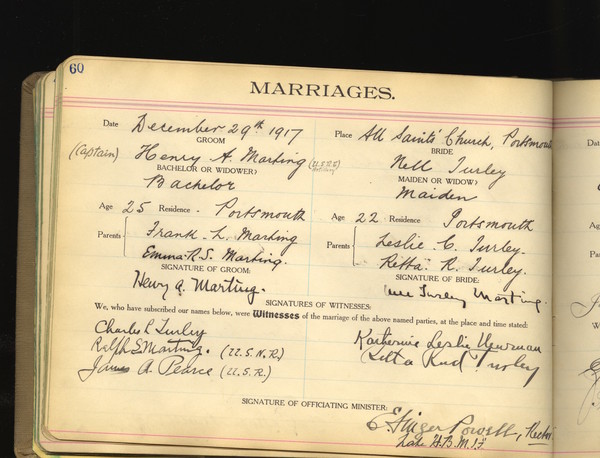 60
MARRIAGES.
Date December 29th 1917 Place All Saints' Church, Portsmouth
GROOM BRIDE
(Captain) Henry A. Marting (U.S.R.) Nell Turley
BACHELOR OR WIDOWER) MAIDEN OR WIDOW)
Bachelor Maiden
Age 25 Residence Portsmouth Age 22 Residence Portsmouth
Parents Frank L. Marting Parents Leslie C. Turley.
Emma R. S. Marting. Retta R. Turley.
SIGNATURE OF GROOM: SIGNATURE OF BRIDE:
Henry A. Marting. Turley Marting.
SIGNATURES OF WITNESSES:
We, who have subscribed our names below, were Witnesses of the marriage of the above named parties, at the place and time stated:
Charles L Turley Katherine Leslie Newman
Ralph S Marting. (U.S.N.R.) Turley
James A. Pearce (U.S.R.)
SIGNATURE OF OFFICIATING MINISTER:
E Ainger Powell, Rector